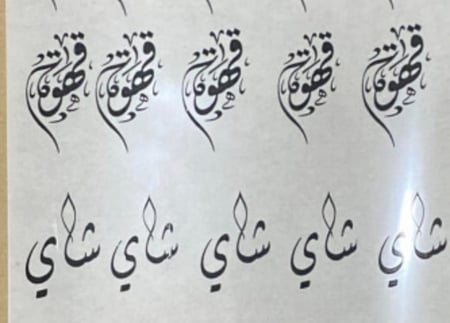 قهوة قهوة قهوة قهوة قهوة
شاي شاي شاي شاي شاي